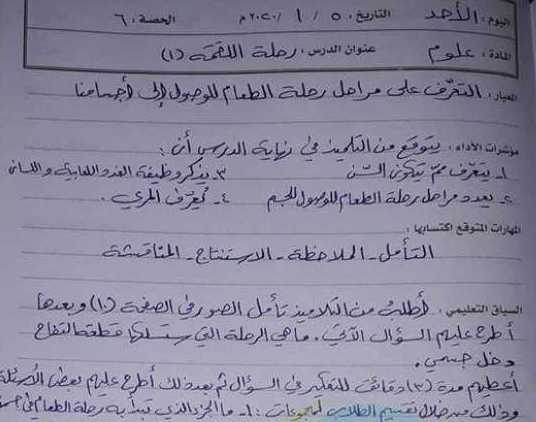 اليوم: الأحد التاريخ: ٥ / ١ / ٢٠٢٠م الحصة: ٦
المادة: علوم عنوان الدرس: رحلة اللقمة (١)
المعيار: التعرّف على مراحل رحلة الطعام للوصول إلى أجسامنا
مؤشرات الأداء: يتوقع من التلميذ في نهاية الدرس أن:
١- يتعرف ممّ يتكون السّن ٣- يذكر وظيفة الغدد اللعابية واللسان
٢- يعدد مراحل رحلة الطعام للوصول للجسم ٤- يُعرّف المريء.
المهارات المتوقع اكتسابها:
التأمل - الملاحظة - الاستنتاج - المناقشة
السياق التعليمي: أطلب من التلاميذ تأمل الصور في الصفحة (١) وبعدها
أطرح عليهم السؤال الآتي. ما هي الرحلة التي ستسلكها قطعة التفاح
دخل جسمي.
أعطيهم مدة (٣) دقائق للتفكير في السؤال ثم بعد ذلك أطرح عليهم بعض الأسئلة
وذلك من خلال تقسيم الطلاب لمجموعات: ١- ما الجزء الذي تبدأ به رحلة الطعام في